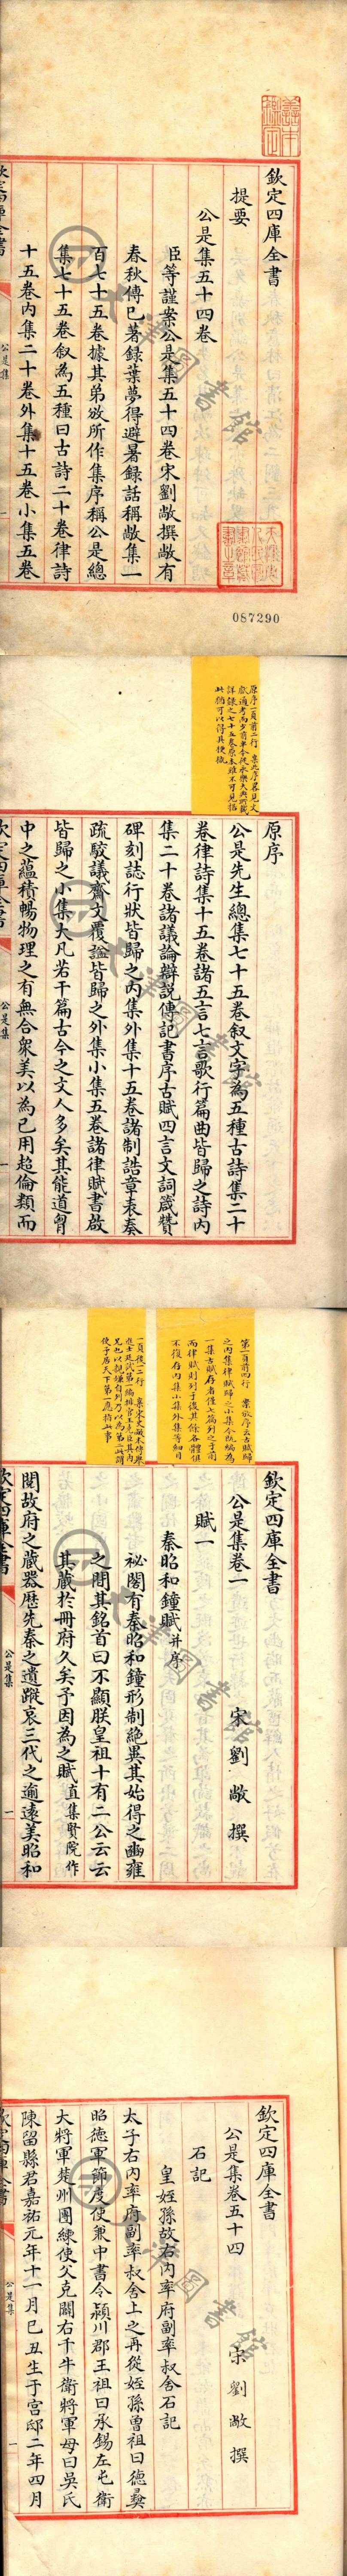 欽定四庫全書
提要
公是集五十四卷
臣等謹案公是集五十四卷宋劉敞撰敞有
春秋傳已著録葉夢得避暑録話稱敞集一
百七十五卷據其弟攽所作集序稱公是總
集七十五卷叙為五種曰古詩二十卷律詩
十五卷内集二十卷外集十五卷小集五卷
欽定四庫全書
公是集
一
天津圖書館
087290
原序一頁前二行
原序
公是先生總集七十五卷叙文字為五種古詩集二十
卷律詩集十五卷諸五言七言歌行篇曲皆歸之詩内
集二十卷諸議論辯説傳記書序古賦四言文詞箴贊
碑刻誌行狀皆歸之内集外集十五卷諸制誥章表奏
疏駁議齋文覆謚皆歸之外集小集五卷諸律賦書啟
皆歸之小集大凡若干篇古今之文人多矣其能道胷
中之藴積暢物理之有無合衆美以為已用超倫類而
欽定四庫全書
公是集
一
天津圖書館
第一頁前四行 案攽序云古賦歸
之内集律賦歸之小集今既編為
一集古賦存者僅七篇列之于前
而律賦則列于後其餘各體俱
不復存内集小集外集等細目
一頁後一二行
欽定四庫全書
公是集卷一
宋 劉敞 撰
賦一
秦昭和鐘賦并序
祕閣有秦昭和鐘形制絶異其始得之豳雍
之間其銘首曰不顯朕皇祖十有二公云云
其藏於冊府久矣予因為之賦直集賢院作
閲故府之藏器歴先秦之遺蹤哀三代之逾遠美昭和
欽定四庫全書
公是集
一
天津圖書館
欽定四庫全書
公是集卷五十四
宋 劉敞 撰
石記
皇姪孫故右内率府副率叔舍石記
太子右内率府副率叔舍上之再從姪孫曾祖曰德彛
昭德軍節度使兼中書令潁川郡王祖曰承錫左屯衛
大將軍楚州團練使父克闢右千牛衛將軍母曰吳氏
陳留縣君嘉祐元年十一月己丑生于宫邸二年四月
欽定四庫全書
公是集
一
天津圖書館